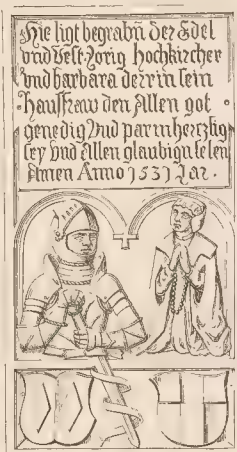 Hie ligt begrabn der Edel
vnd Vest Jorig Hochkircher
Vnd barbara derrin sein
Hauſfraw den Allen got
genedig Vnd parmhertzſig
ſey vnd Allen glaubign ſelen
Amen Anno 1531 Jar.